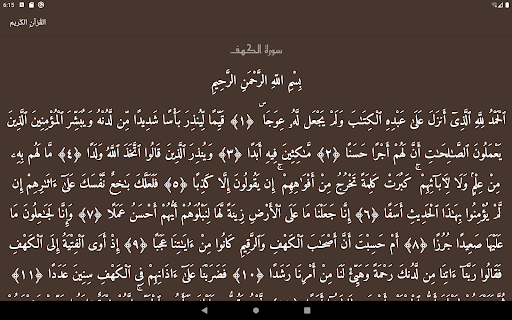 6:15
القرآن الكريم
سورة الكهف
بِسْمِ اللَّهِ الرَّحْمَنِ الرَّحِيمِ
ٱلْحَمْدُ لِلَّهِ ٱلَّذِىٓ أَنزَلَ عَلَىٰ عَبْدِهِ ٱلْكِتَـٰبَ وَلَمْ يَجْعَل لَّهُۥ عِوَجَا ۜ ﴿١﴾ قَيِّمًا لِّيُنذِرَ بَأْسًا شَدِيدًا مِّن لَّدُنْهُ وَيُبَشِّرَ ٱلْمُؤْمِنِينَ ٱلَّذِينَ
يَعْمَلُونَ ٱلصَّـٰلِحَـٰتِ أَنَّ لَهُمْ أَجْرًا حَسَنًا ﴿٢﴾ مَّـٰكِثِينَ فِيهِ أَبَدًا ﴿٣﴾ وَيُنذِرَ ٱلَّذِينَ قَالُوا۟ ٱتَّخَذَ ٱللَّهُ وَلَدًا ﴿٤﴾ مَّا لَهُم بِهِۦ
مِنْ عِلْمٍ وَلَا لِـَٔابَآئِهِمْ ۚ كَبُرَتْ كَلِمَةً تَخْرُجُ مِنْ أَفْوَٰهِهِمْ ۚ إِن يَقُولُونَ إِلَّا كَذِبًا ﴿٥﴾ فَلَعَلَّكَ بَـٰخِعٌ نَّفْسَكَ عَلَىٰٓ ءَاثَـٰرِهِمْ إِن
لَّمْ يُؤْمِنُوا۟ بِهَـٰذَا ٱلْحَدِيثِ أَسَفًا ﴿٦﴾ إِنَّا جَعَلْنَا مَا عَلَى ٱلْأَرْضِ زِينَةً لَّهَا لِنَبْلُوَهُمْ أَيُّهُمْ أَحْسَنُ عَمَلًا ﴿٧﴾ وَإِنَّا لَجَـٰعِلُونَ مَا
عَلَيْهَا صَعِيدًا جُرُزًا ﴿٨﴾ أَمْ حَسِبْتَ أَنَّ أَصْحَـٰبَ ٱلْكَهْفِ وَٱلرَّقِيمِ كَانُوا۟ مِنْ ءَايَـٰتِنَا عَجَبًا ﴿٩﴾ إِذْ أَوَى ٱلْفِتْيَةُ إِلَى ٱلْكَهْفِ
فَقَالُوا۟ رَبَّنَآ ءَاتِنَا مِن لَّدُنكَ رَحْمَةً وَهَيِّئْ لَنَا مِنْ أَمْرِنَا رَشَدًا ﴿١٠﴾ فَضَرَبْنَا عَلَىٰٓ ءَاذَانِهِمْ فِى ٱلْكَهْفِ سِنِينَ عَدَدًا ﴿١١﴾